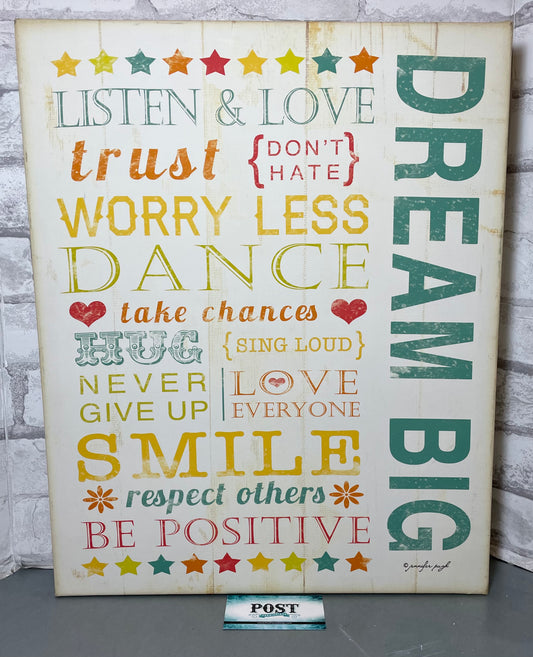 LISTEN & LOVE
trust
{DON'T
HATE}
WORRY LESS
DANCE
take chances
HUG
{SING LOUD}
NEVER
GIVE UP
LOVE
EVERYONE
SMILE
respect others
BE POSITIVE
DREAM BIG
© jennifer pugh
POST